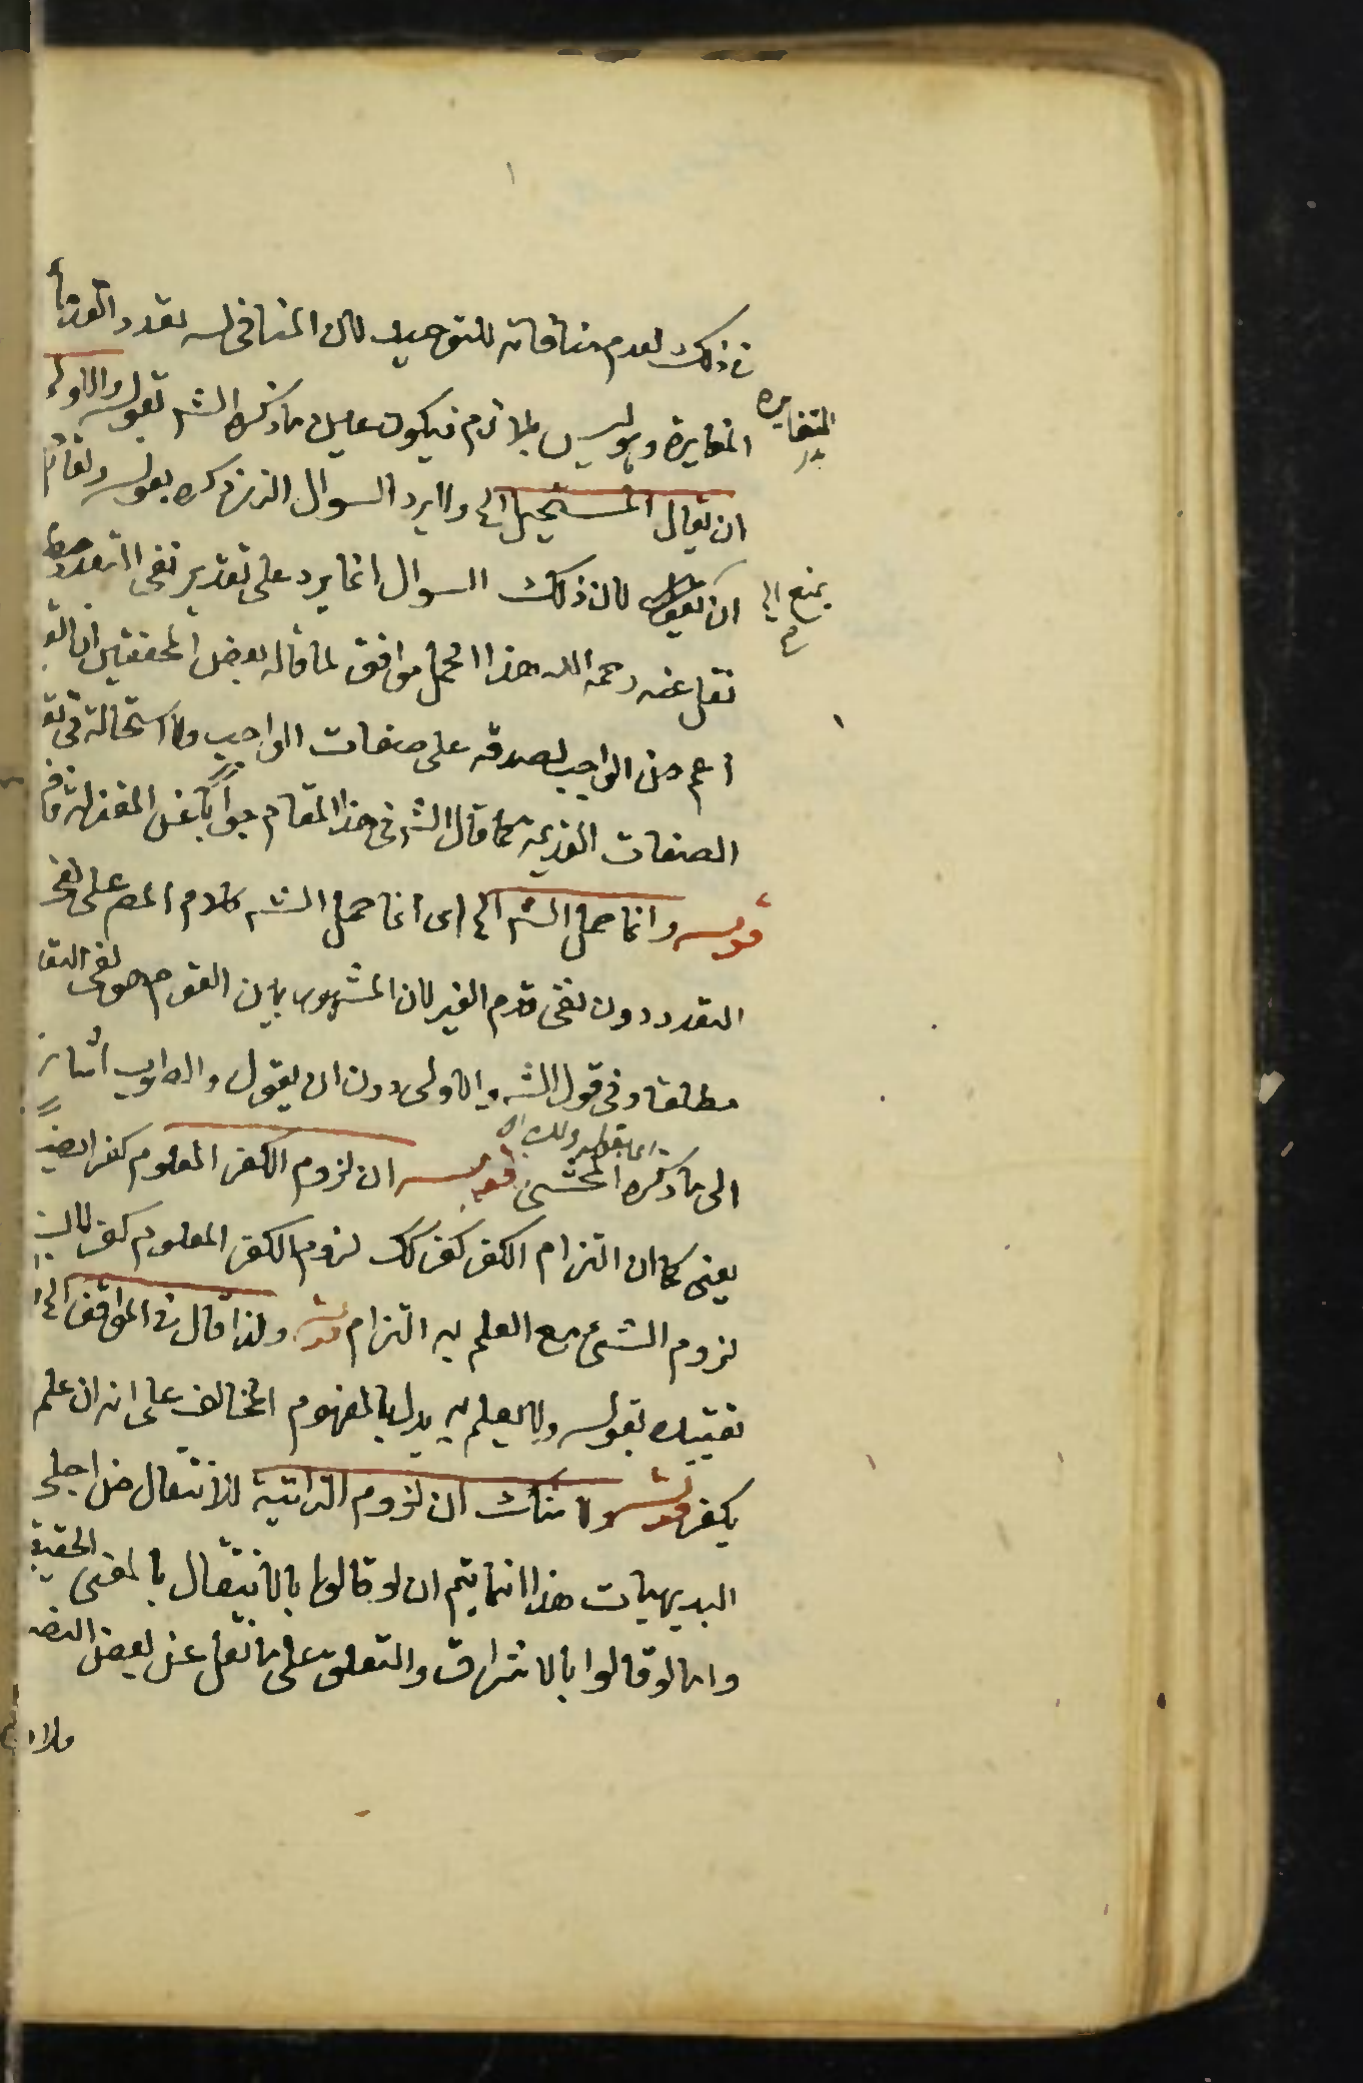 في ذلك لعدم منافاته للتوحيد لان المنافى له تعدد القدماء
المتغايرة
المغايرة وهو ليس بلازم فيكون عين ما ذكره الش بقوله والاولى
ان يقال المستحيل الخ ولا يرد السوال الذى ذكره بقوله ولقائل
يمنع الخ
ان يقول لان ذلك السوال انما يرد على تقدير نفى التعدد
نقل عنه رحمه الله هذا المحمل موافق لما قاله بعض المحققين ان
اعم من الواجب لصدقه على صفات الواجب ولا استحالة فى
الصفات القديمة كما قال الش فى هذا المقام جوابا عن
قوله وانما حمل الش الخ اى انما حمل الش كلام المص على نفى
التعدد دون نفى قدم الغير لان المشهور بين القوم هو نفى
مطلقا وفى قول الش والاولى دون ان يقول والصواب
الى ما ذكره المحشى قوله ان لزوم الكفر المعلوم كفر ايضا
يعنى كما ان التزام الكفر كفر كك لزوم الكفر المعلوم كفر لان
لزوم الشئ مع العلم به التزام قوله ولذا قال في المواقف الخ
تقييده بقوله ولا يعلم به يدل بالمفهوم المخالف على انه ان علم
يكفر قوله ولا شك ان لزوم الذاتية للانتقال من اجلى
البديهيات هذا انما يتم ان لو قالوا بالانتقال بالمعنى
واما لو قالوا بالاشراق والتعلق على ما نقل عن بعض